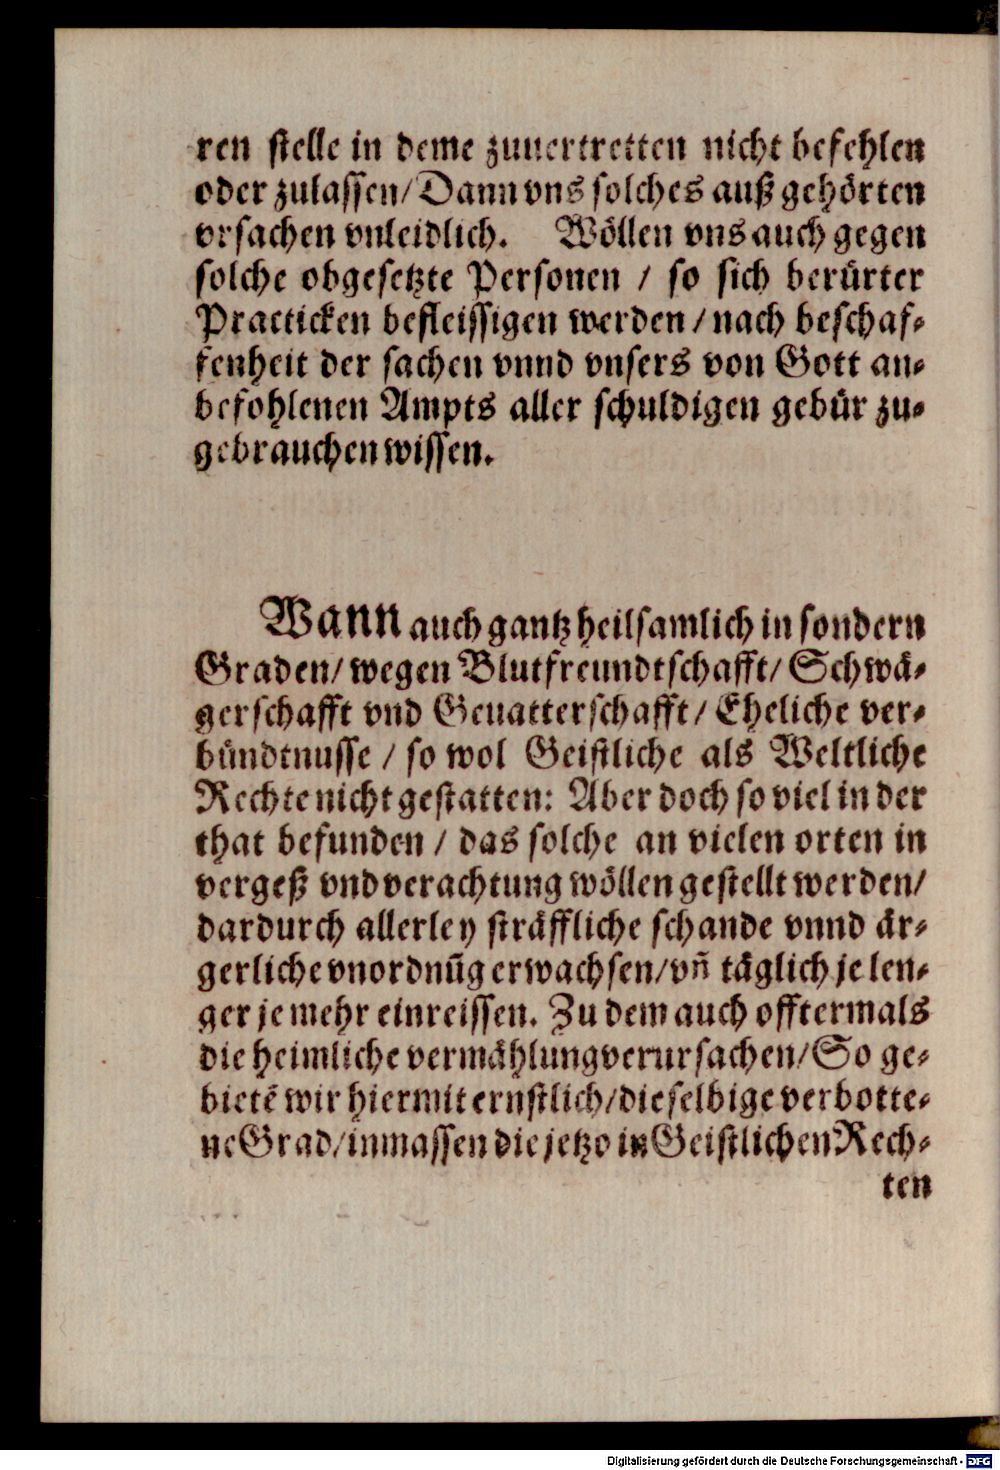 ren stelle in deme zuuertretten nicht befehlen
oder zulassen/Dann vns solches auß gehörten
vrsachen vnleidlich. Wöllen vns auch gegen
solche obgesetzte Personen / so sich berürter
Practicken befleissigen werden/nach beschaf-
fenheit der sachen vnnd vnsers von Gott an-
befohlenen Ampts aller schuldigen gebür zu-
gebrauchen wissen.
Wann auch gantz heilsamlich in sondern
Graden/ wegen Blutfreundtschafft/ Schwä-
gerschafft vnd Geuatterschafft/ Eheliche ver-
bündtnusse / so wol Geistliche als Weltliche
Rechte nicht gestatten: Aber doch so viel in der
that befunden / das solche an vielen orten in
vergeß vnd verachtung wöllen gestellt werden/
dardurch allerley sträffliche schande vnnd är-
gerliche vnordnũg erwachsen/vñ täglich je len-
ger je mehr einreissen. Zu dem auch offtermals
die heimliche vermählung verursachen/So ge-
bietẽ wir hiermit ernstlich/dieselbige verbotte-
ne Grad/inmassen die jetzo in Geistlichen Rech-
ten
Digitalisierung gefördert durch die Deutsche Forschungsgemeinschaft - DFG